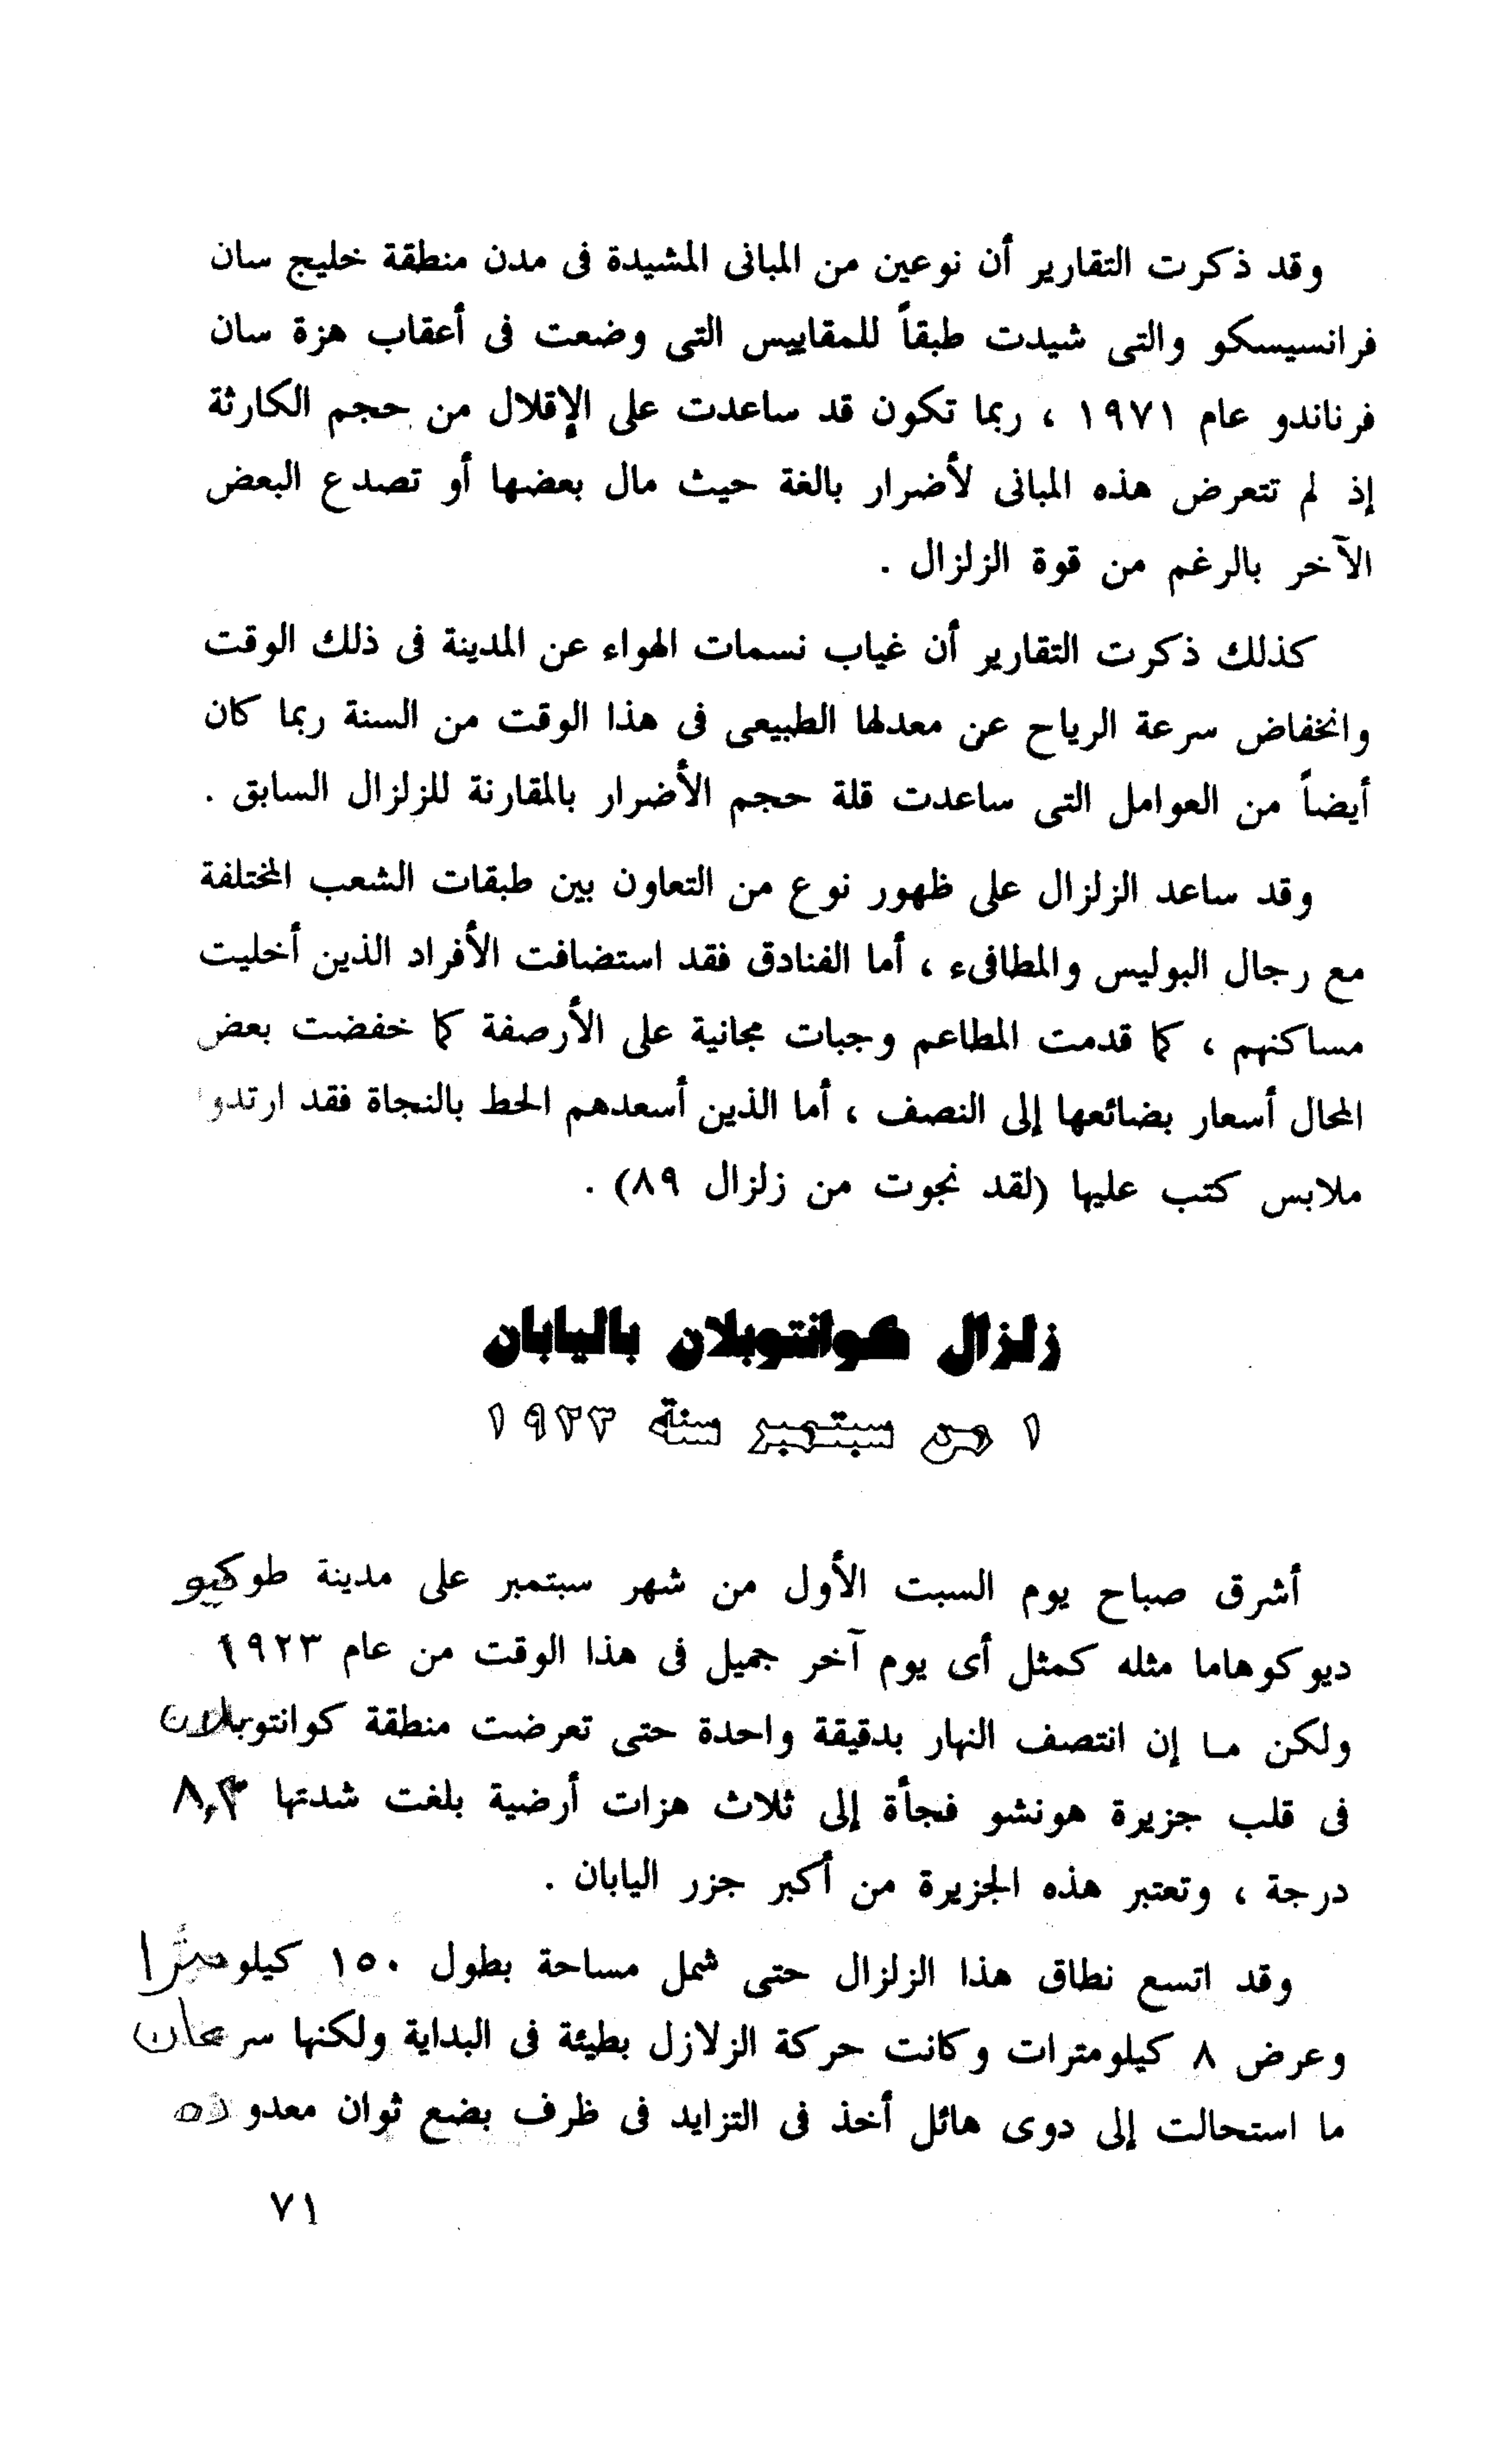 وقد ذكرت التقارير أن نوعين من المبانى المشيدة فى مدن منطقة خليج سان
فرانسيسكو والتى شيدت طبقاً للمقاييس التى وضعت فى أعقاب هزة سان
فرناندو عام ١٩٧١ ، ربما تكون قد ساعدت على الإقلال من حجم الكارثة
إذ لم تتعرض هذه المبانى لأضرار بالغة حيث مال بعضها أو تصدع البعض
الآخر بالرغم من قوة الزلزال .
كذلك ذكرت التقارير أن غياب نسمات الهواء عن المدينة فى ذلك الوقت
وانخفاض سرعة الرياح عن معدلها الطبيعى فى هذا الوقت من السنة ربما كان
أيضاً من العوامل التى ساعدت قلة حجم الأضرار بالمقارنة للزلزال السابق .
وقد ساعد الزلزال على ظهور نوع من التعاون بين طبقات الشعب المختلفة
مع رجال البوليس والمطافىء ، أما الفنادق فقد استضافت الأفراد الذين أخليت
مساكنهم ، كما قدمت المطاعم وجبات مجانية على الأرصفة كما خفضت بعض
المحال أسعار بضائعها إلى النصف ، أما الذين أسعدهم الحظ بالنجاة فقد ارتدوا
ملابس كتب عليها (لقد نجوت من زلزال ٨٩) .
زلزال كوانتوبلان باليابان
١ من سبتمبر سنة ١٩٢٣
أشرق صباح يوم السبت الأول من شهر سبتمبر على مدينة طوكيو
ديوكوهاما مثله كمثل أى يوم آخر جميل فى هذا الوقت من عام ١٩٢٣
ولكن ما إن انتصف النهار بدقيقة واحدة حتى تعرضت منطقة كوانتوبلان
فى قلب جزيرة هونشو فجأة إلى ثلاث هزات أرضية بلغت شدتها ٨,٣
درجة ، وتعتبر هذه الجزيرة من أكبر جزر اليابان .
وقد اتسع نطاق هذا الزلزال حتى شمل مساحة بطول ١٥٠ كيلومترا
وعرض ٨ كيلومترات وكانت حركة الزلازل بطيئة فى البداية ولكنها سرعان
ما استحالت إلى دوى هائل أخذ فى التزايد فى ظرف بضع ثوان معدوده
٧١